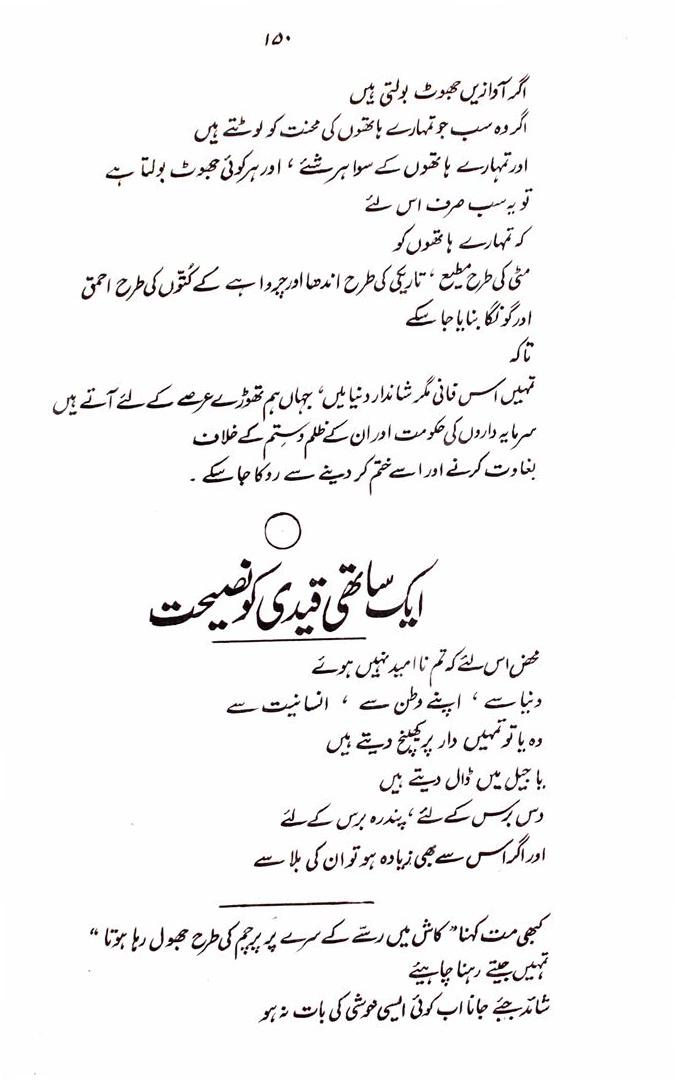 ۱۵۰
اگر آوازیں جھوٹ بولتی ہیں
اگر وہ سب جو تمہارے ہاتھوں کی محنت کو لوٹتے ہیں
اور تمہارے ہاتھوں کے سوا ہر شئے ، اور ہر کوئی جھوٹ بولتا ہے
تو یہ سب صرف اس لئے
کہ تمہارے ہاتھوں کو
مٹی کی طرح مطیع ، تاریکی کی طرح اندھا اور چرواہے کے کُتّوں کی طرح احمق
اور گونگا بنایا جا سکے
تاکہ
تمہیں اس فانی مگر شاندار دنیا میں ، جہاں ہم تھوڑے عرصے کے لئے آتے ہیں
سرمایہ داروں کی حکومت اور ان کے ظلم و ستم کے خلاف
بغاوت کرنے اور اسے ختم کر دینے سے روکا جا سکے ۔
ایک ساتھی قیدی کو نصیحت
محض اس لئے کہ تم نا امید نہیں ہوئے
دنیا سے ، اپنے وطن سے ، انسانیت سے
وہ یا تو تمہیں دار پر کھینچ دیتے ہیں
یا جیل میں ڈال دیتے ہیں
دس برس کے لئے ، پندرہ برس کے لئے
اور اگر اس سے بھی زیادہ ہو تو ان کی بلا سے
کبھی مت کہنا " کاش میں رسّے کے سرے پر پرچم کی طرح جھول رہا ہوتا "
تمہیں جیتے رہنا چاہیئے
شائد جئے جانا اب کوئی ایسی خوشی کی بات نہ ہو